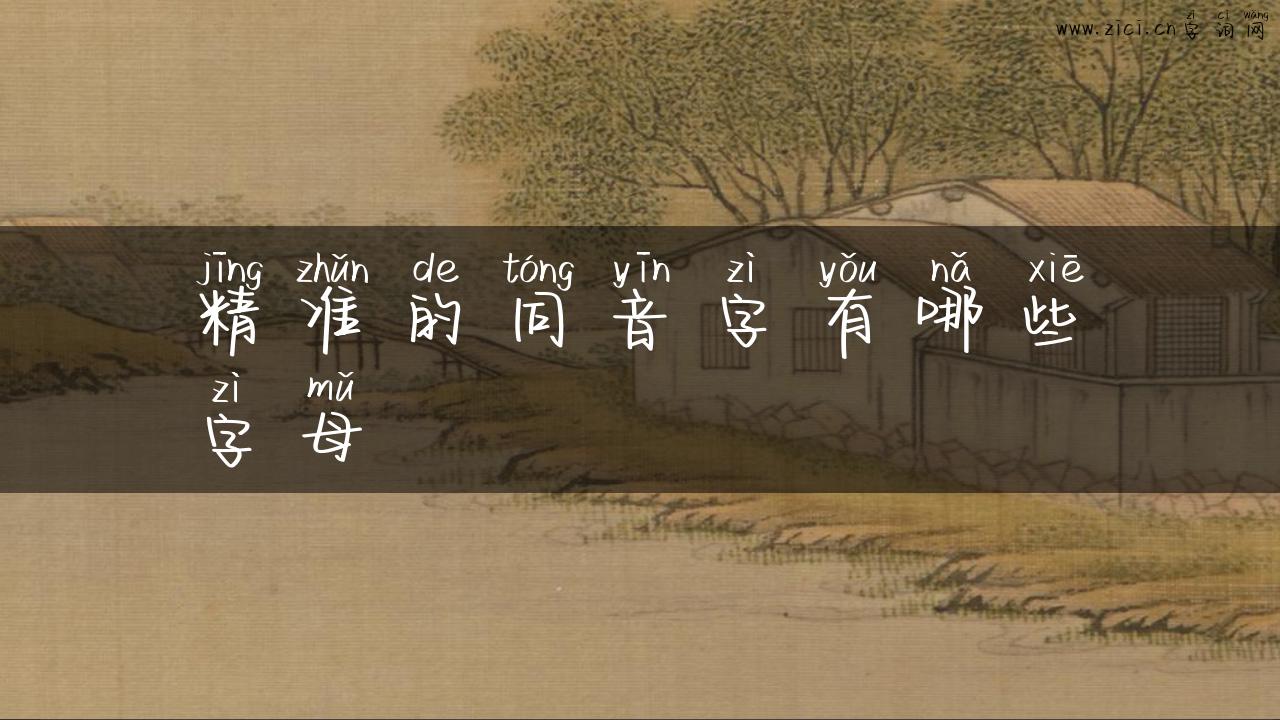 zì cí wǎng
www.zici.cn 字词网
jīng zhǔn de tóng yīn zì yǒu nǎ xiē
精准的同音字有哪些
zì mǔ
字母